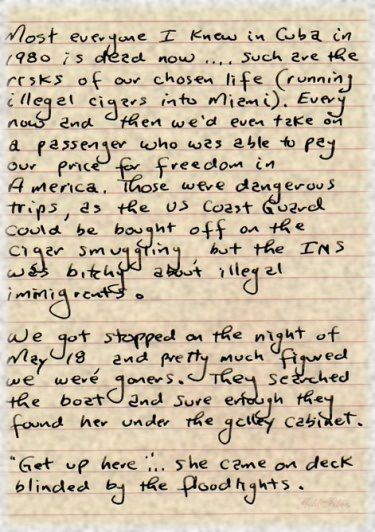 Most everyone I knew in Cuba in
1980 is dead now .... such are the
risks of our chosen life (running
illegal cigars into Miami). Every
now and then we'd even take on
a passenger who was able to pay
our price for freedom in
America. Those were dangerous
trips, as the US Coast Guard
could be bought off on the
cigar smuggling, but the INS
was bitchy about illegal
immigrants.

We got stopped on the night of
May 18 and pretty much figured
we were goners. They searched
the boat and sure enough they
found her under the galley cabinet.

"Get up here"... she came on deck
blinded by the floodlights.